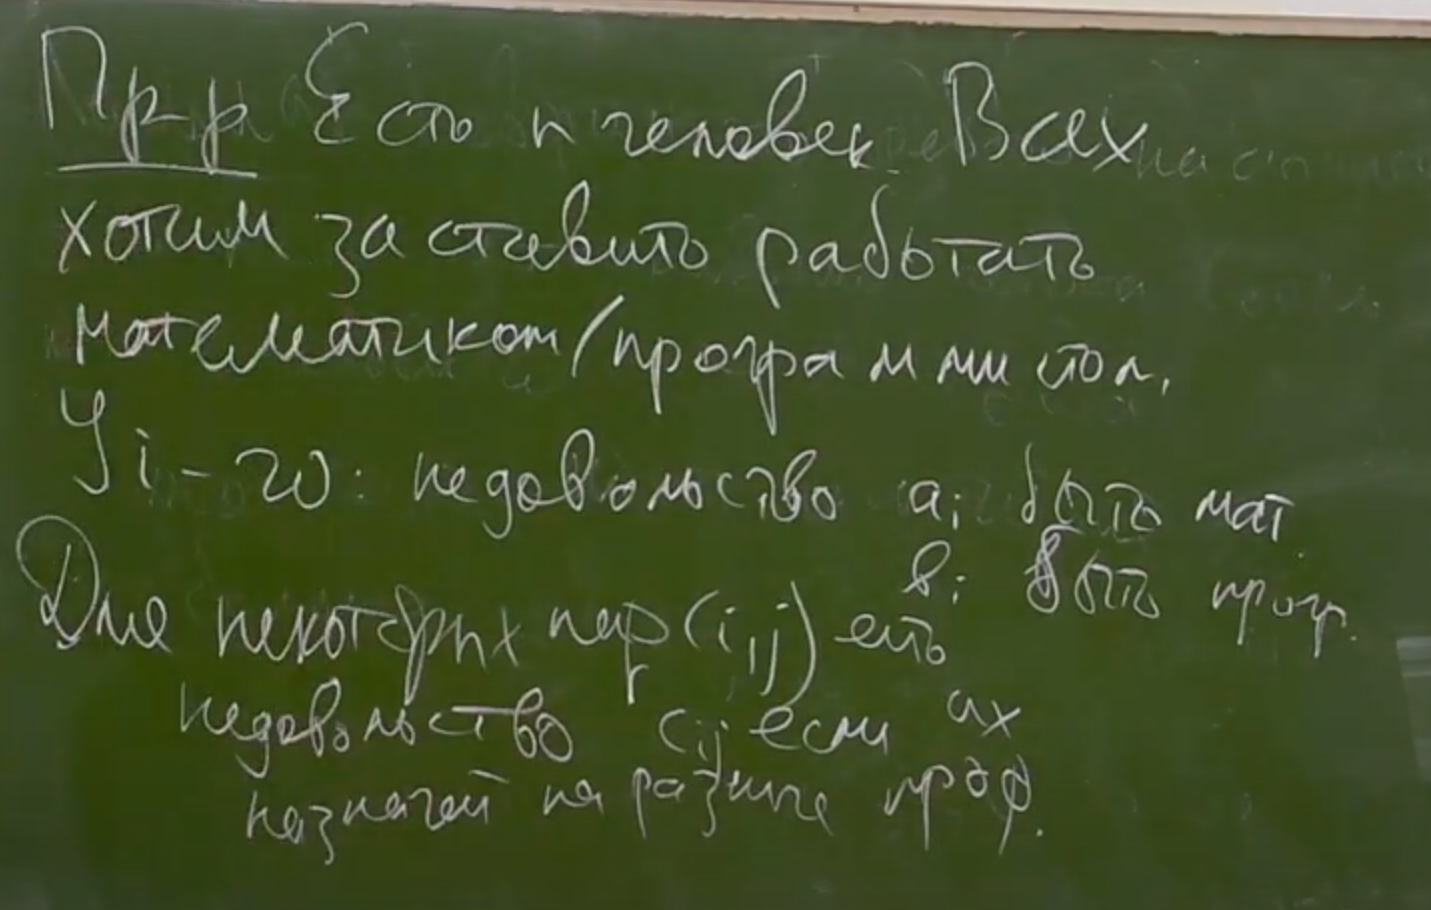 Пр-р Есть n человек Всех
хотим заставить работать
математиком/программистом.
У i-го: недовольство a_i быть мат.
b_i быть прогр.
Для некоторых пар (i,j) есть
недовольство c_ij если их
назначат на разные проф.